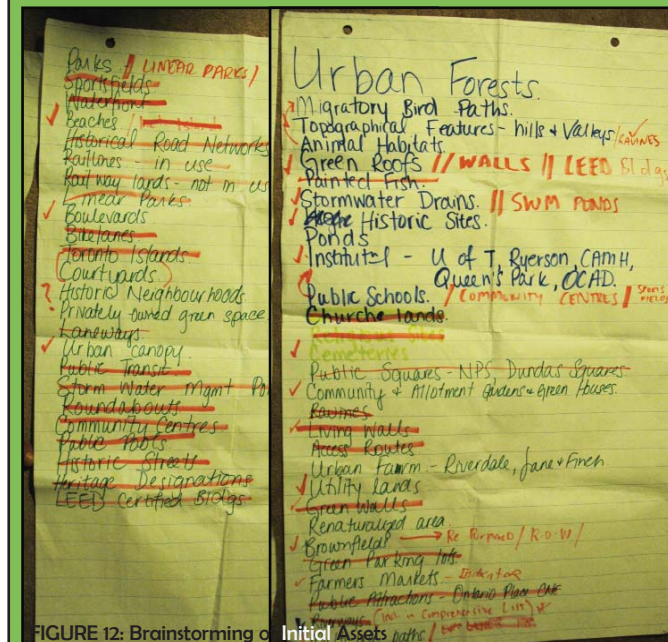 Parks // LINEAR PARKS /
Sportsfields
Waterfront
Beaches /
Historical Road Networks
Raillines - in use
Railway lands - not in us
Linear Parks.
Boulevards
Bikelanes
Toronto Islands.
Courtyards
? Historic Neighbourhoods
Privately owned green space
Laneways.
Urban canopy.
Public Transit
Storm Water Mgmt Po
Roundabouts
Community Centres
Public Pools
Historic Streets
Heritage Designations
LEED Certified Bldgs
Urban Forests.
Migratory Bird Paths.
Topographical Features - hills & Valleys / RAVINES
Animal Habitats.
Green Roofs // WALLS // LEED Bldgs
Painted Fish.
Stormwater Drains. // SWM PONDS
Historic Sites.
Ponds
Institut'l - U of T, Ryerson, CAMH,
Queen's Park, OCAD.
Public Schools. / COMMUNITY CENTRES / SPORTS FIELDS
Churche lands.
Cemeteries
Public Squares - NPS, Dundas Squares
Community & Allotment Gardens & Green Houses.
Ravines
Living Walls
Access Routes
Urban Farm - Riverdale, Jane & Finch
Utility lands
Green Walls
Renaturalized area.
Brownfield → Re Purposed / R.O.W /
Green Parking lots.
Farmers Markets -
Public Attractions - Ontario Place CNE
(incl in Comprehensive List)
paths /
FIGURE 12: Brainstorming of Initial Assets